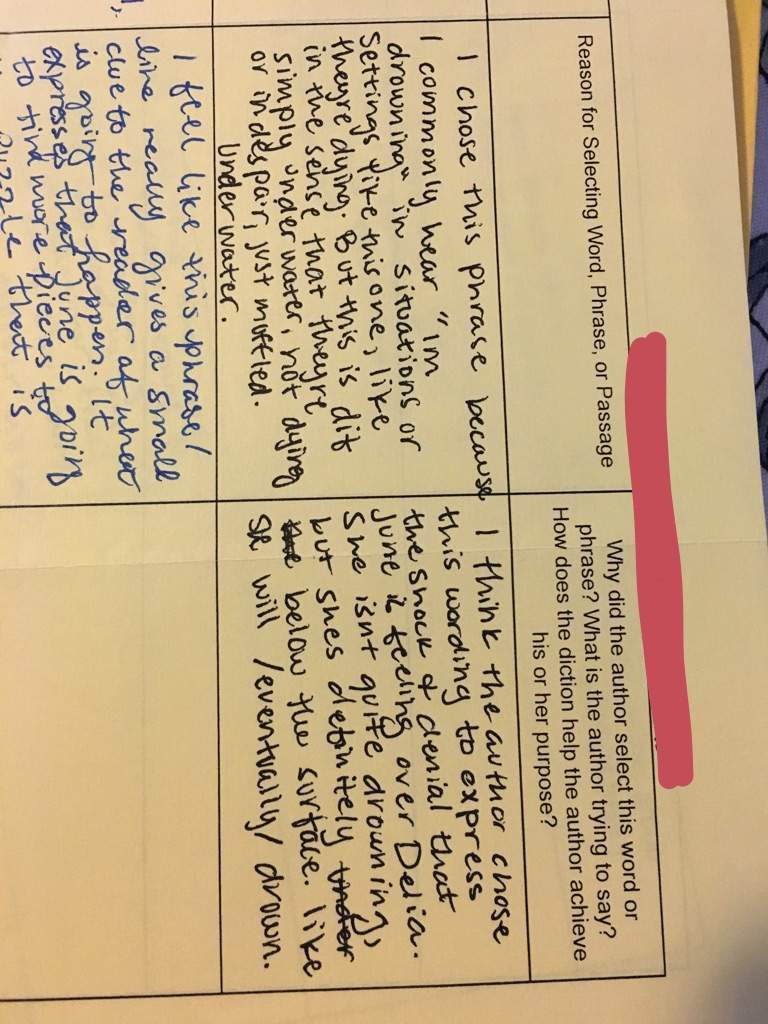 Reason for Selecting Word, Phrase, or Passage
I chose this phrase because
I commonly hear "im
drowning" in situations or
settings like this one, like
theyre dying. But this is dif
in the sense that theyre
simply underwater, not dying
or in despair, just muffled.
Underwater.
I feel like this phrase/
line really gives a small
clue to the reader of what
is going to happen. It
expresses that June is going
to find more pieces to
puzzle that is
Why did the author select this word or
phrase? What is the author trying to say?
How does the diction help the author achieve
his or her purpose?
I think the author chose
this wording to express
the shock & denial that
June is feeling over Delia.
She isnt quite drowning,
but shes definitely under
below the surface. like
she will /eventually/ drown.